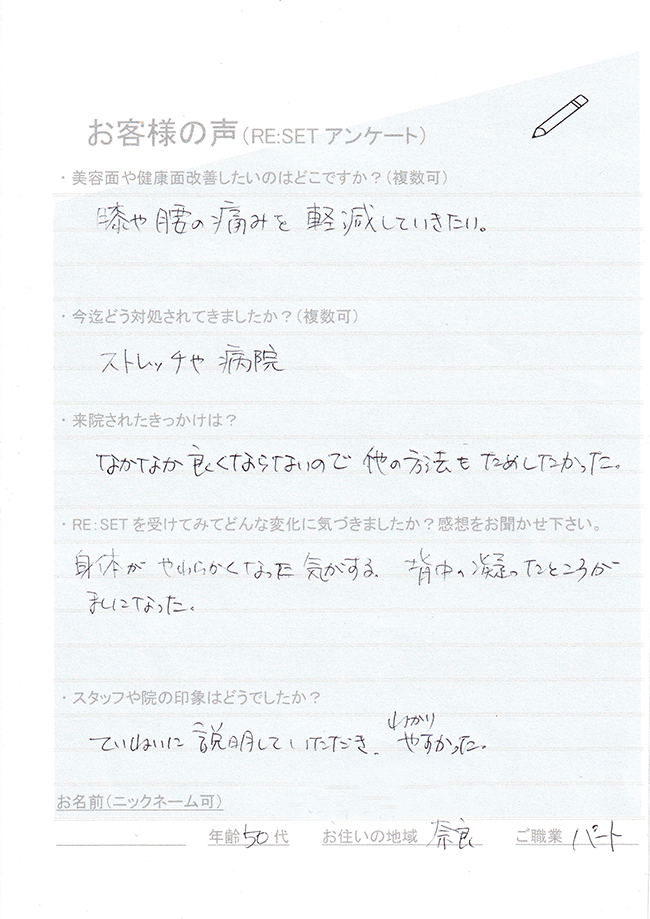 お客様の声（RE:SET アンケート）
・美容面や健康面改善したいのはどこですか？（複数可）
膝や腰の痛みを軽減していきたい。
・今迄どう対処されてきましたか？（複数可）
ストレッチや病院
・来院されたきっかけは？
なかなか良くならないので他の方法もためしたかった。
・RE：SET を受けてみてどんな変化に気づきましたか？感想をお聞かせ下さい。
身体がやわらかくなった気がする、背中の凝ったところが
ましになった。
・スタッフや院の印象はどうでしたか？
ていねいに説明していただき、わかりやすかった。
お名前（ニックネーム可）
年齢 50 代 お住いの地域 奈良 ご職業 パート